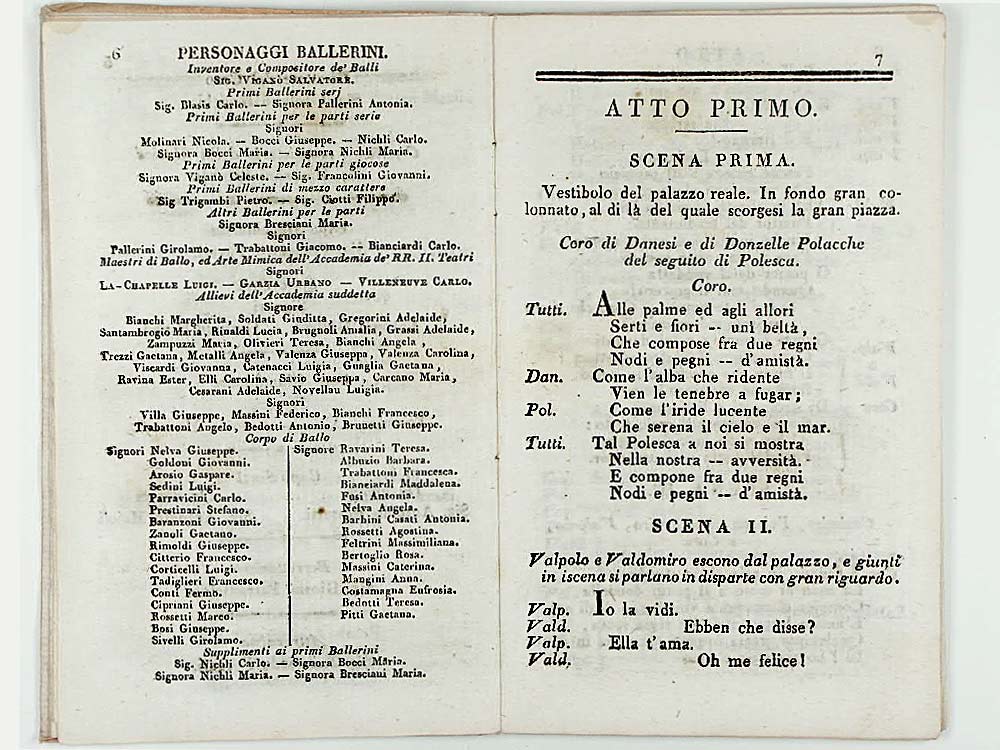 6
PERSONAGGI BALLERINI.
Inventore e Compositore de' Balli
SIG. VIGANÒ SALVATORE.
Primi Ballerini serj
Sig. Blasis Carlo. — Signora Pallerini Antonia.
Primi Ballerini per le parti serie
Signori
Molinari Nicola. — Bocci Giuseppe. — Nichli Carlo.
Signora Bocci Maria. — Signora Nichli Maria.
Primi Ballerini per le parti giocose
Signora Viganò Celeste. — Sig. Francolini Giovanni.
Primi Ballerini di mezzo carattere
Sig Trigambi Pietro. — Sig. Ciotti Filippo.
Altri Ballerini per le parti
Signora Bresciani Maria.
Signori
Pallerini Girolamo. — Trabattoni Giacomo. -- Bianciardi Carlo.
Maestri di Ballo, ed Arte Mimica dell'Accademia de' RR. II. Teatri
Signori
LA-CHAPELLE LUIGI. — GARZIA URBANO — VILLENEUVE CARLO.
Allievi dell'Accademia suddetta
Signore
Bianchi Margherita, Soldati Giuditta, Gregorini Adelaide,
Santambrogio Maria, Rinaldi Lucia, Brugnoli Amalia, Grassi Adelaide,
Zampuzzi Maria, Olivieri Teresa, Bianchi Angela,
Trezzi Gaetana, Metalli Angela, Valenza Giuseppa, Valenza Carolina,
Viscardi Giovanna, Catenacci Luigia, Guaglia Gaetana,
Ravina Ester, Elli Carolina, Savio Giuseppa, Carcano Maria,
Cesarani Adelaide, Novellau Luigia.
Signori
Villa Giuseppe, Massini Federico, Bianchi Francesco,
Trabattoni Angelo, Bedotti Antonio, Brunetti Giuseppe.
Corpo di Ballo
Signori Nelva Giuseppe.
Goldoni Giovanni.
Arosio Gaspare.
Sedini Luigi.
Parravicini Carlo.
Prestinari Stefano.
Baranzoni Giovanni.
Zanoli Gaetano.
Rimoldi Giuseppe.
Citterio Francesco.
Corticelli Luigi.
Tadiglieri Francesco.
Conti Fermo.
Cipriani Giuseppe.
Rossetti Marco.
Bosi Giuseppe.
Sivelli Girolamo.
Signore Ravarini Teresa.
Albuzio Barbara.
Trabattoni Francesca.
Bianciardi Maddalena.
Fusi Antonia.
Nelva Angela.
Barbini Casati Antonia.
Rossetti Agostina.
Feltrini Massimiliana.
Bertoglio Rosa.
Massini Caterina.
Mangini Anna.
Costamagna Eufrosia.
Bedotti Teresa.
Pitti Gaetana.
Supplimenti ai primi Ballerini
Sig. Nichli Carlo. — Signora Bocci Maria.
Signora Nichli Maria. — Signora Bresciani Maria.
7
ATTO PRIMO.
SCENA PRIMA.
Vestibolo del palazzo reale. In fondo gran co-
lonnato, al di là del quale scorgesi la gran piazza.
Coro di Danesi e di Donzelle Polacche
del seguito di Polesca.
Coro.
Tutti. Alle palme ed agli allori
Serti e fiori -- uni beltà,
Che compose fra due regni
Nodi e pegni -- d'amistà.
Dan. Come l'alba che ridente
Vien le tenebre a fugar;
Pol. Come l'iride lucente
Che serena il cielo e il mar.
Tutti. Tal Polesca a noi si mostra
Nella nostra -- avversità.
E compone fra due regni
Nodi e pegni -- d'amistà.
SCENA II.
Valpolo e Valdomiro escono dal palazzo, e giunti
in iscena si parlano in disparte con gran riguardo.
Valp. Io la vidi.
Vald. Ebben che disse?
Valp. Ella t'ama.
Vald. Oh me felice!